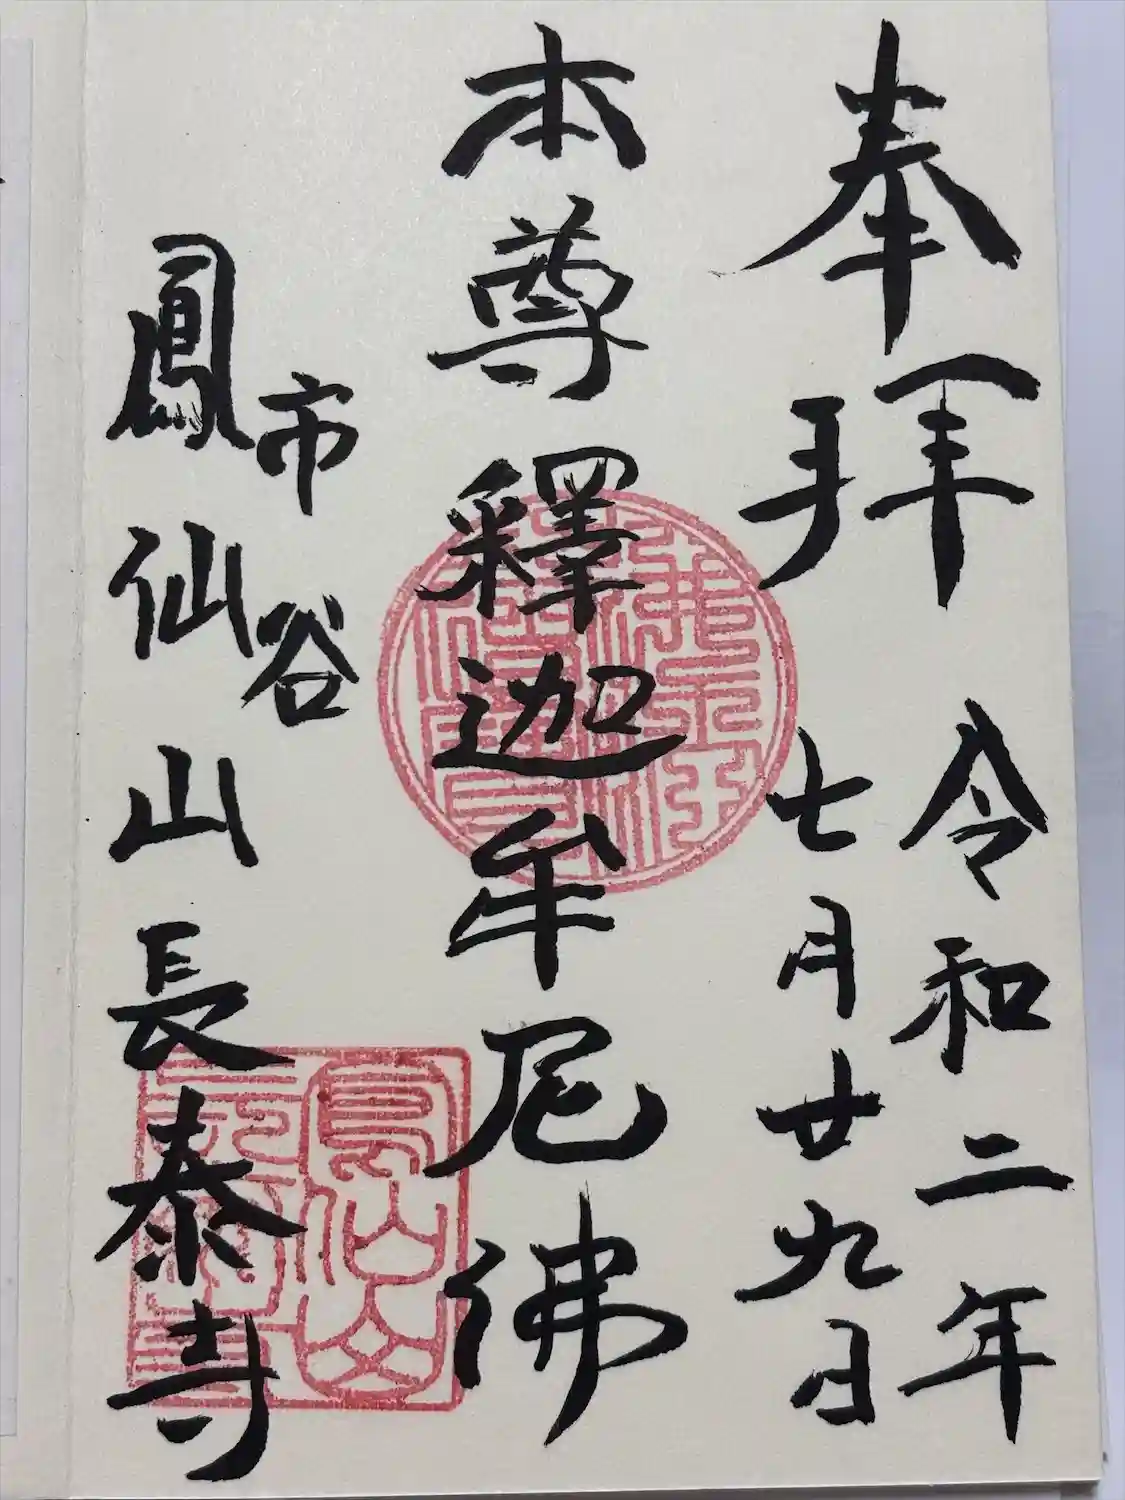 奉拜
令和二年
七月廿九日
本尊釋迦牟尼佛
市谷
鳳仙山長泰寺